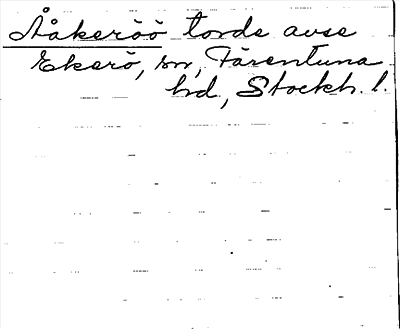 Ååkeröö torde avse
Ekerö, sn, Färentuna
hd, Stockh. l.